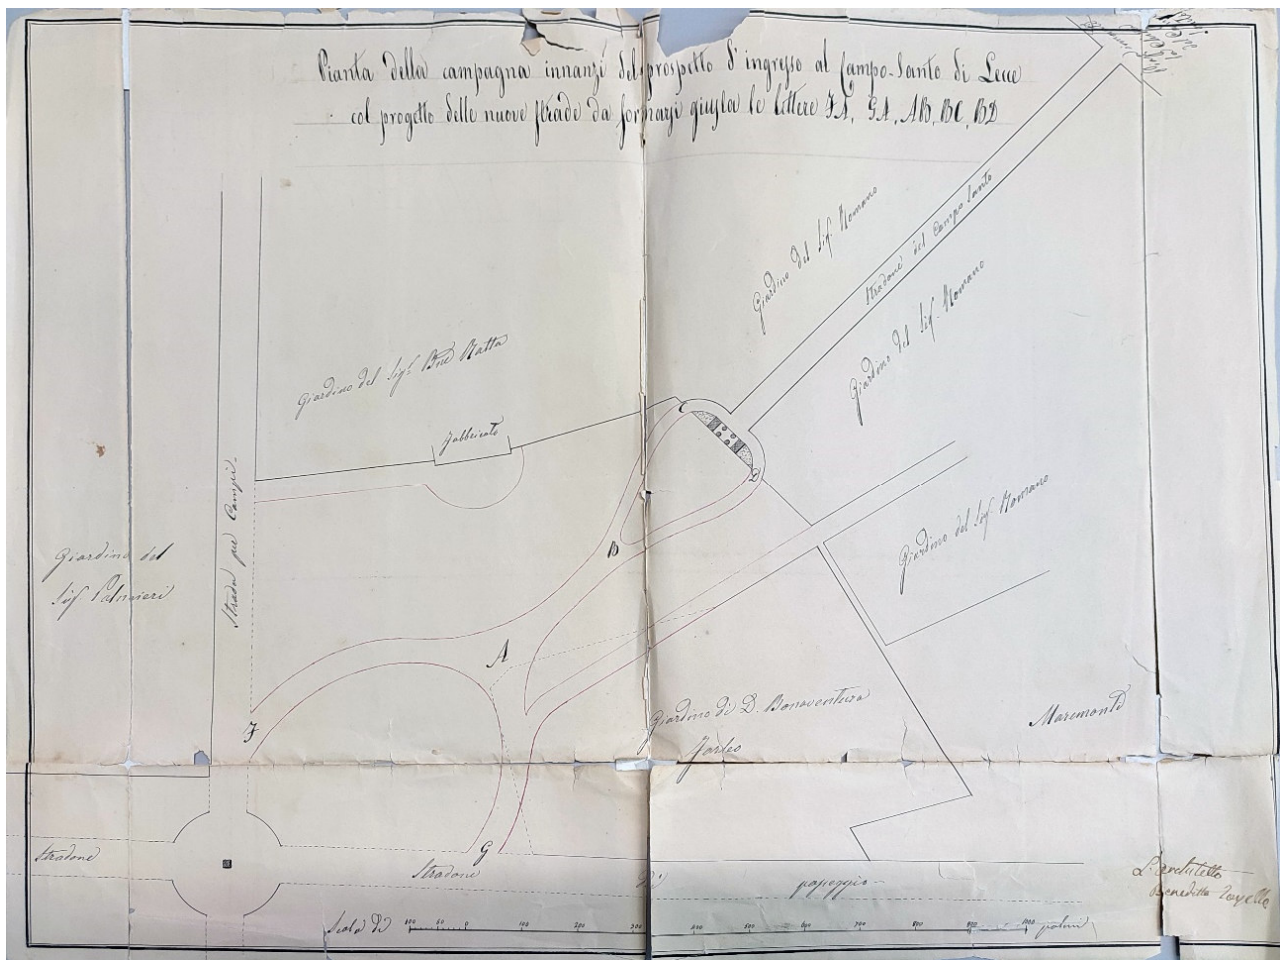 Pianta della campagna innanzi del prospetto d'ingresso al Campo-Santo di Lecce
col progetto delle nuove strade da formarsi giusta le lettere FA, GA, AB, BC, BD
Giardino del Sig. Romano
Stradone del Campo Santo
Giardino del Sig. Romano
Giardino del Sig.
Fabbricato
C
D
Strada per Campi
Giardino del Sig. Romano
B
Giardino del
Sig. Palmieri
A
Giardino di D. Bonaventura
Forleo
Maremonti
F
G
Stradone
Stradone
di
passeggio
L'architetto
Benedetto
Scala di
100 50 0 100 200 300 400 500 600 700 800 900 1000 palmi